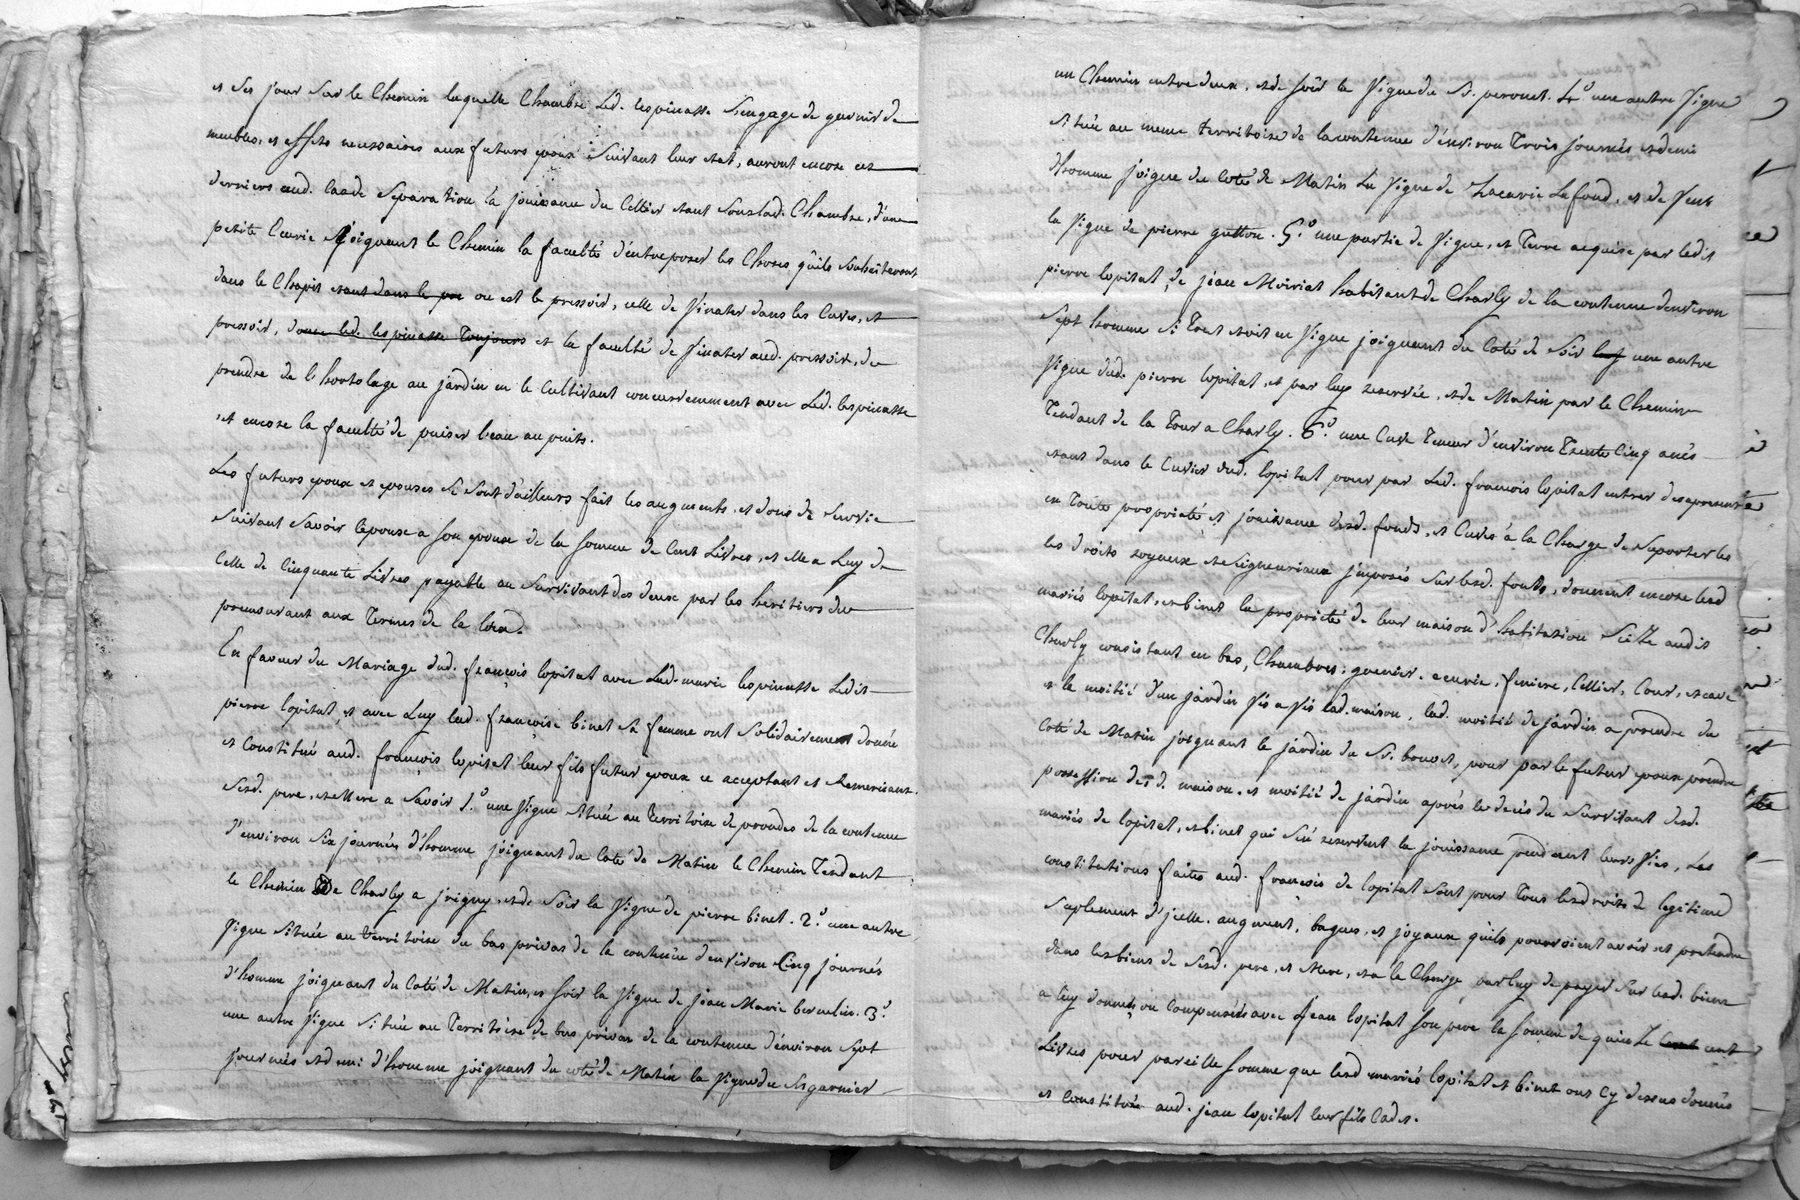 et ses jour sur le Chemin laquelle Chambre Led. lespinasse s'engage de garnir de
meubles, et effets necessaires aux futurs epoux suivant leur etat, auront encore ces
derniers aud. cas de separation la jouissance du Cellier etant sous lad. Chambre, d'une
petite Ecurie joignant le Chemin la faculté d'entreposer les Choses qu'ils souhaiteront
dans le Chapit etant dans le ou est le pressoir, celle de Vinater dans les Cuves, et
pressoir, donne led. lespinasse Toujours et la faculté de Vinater aud. pressoir, de
prendre de l'hortolage au jardin en le Cultivant concurremment avec Led. lespinasse
, et encore la faculté de puiser l'eau au puits.
Les futurs epoux et epouses se sont d'ailleurs fait les augments, et dons de survie
suivant savoir l'epoux a son epouse de la somme de Cent Livres, et elle a Luy de
Celle de Cinquante Livres payable au survivant des deux par les heritiers du
premourant aux Termes de la loix.
En faveur du Mariage dud. françois lopitat avec Lad. marie lespinasse Ledit
pierre lopitat, et avec Luy lad. françoise binet sa femme ont solidairement donné
et Constitué aud. françois lopitat leur fils futur epoux ce acceptant et Remerciant
sesd. pere, et Mere a savoir 1.° une Vigne située au Territoire de prondes de la contenue
d'environ six journés d'homme joignant du Coté de Matin le Chemin Tendant
le Chemin De Charly a jrigny, et de soir la Vigne de pierre binet. 2.° une autre
Vigne située au territoire du bas privas de la contenue d'environ Cinq journés
d'homme joignant du Coté de Matin, et soir la Vigne de jean Marie bermelin. 3.°
une autre Vigne située au Territoire de bas privas de la contenue d'environ sept
journés et demi d'homme joignant du coté de Matin la Vigne du Sr garnier
un Chemin entre deux, et de soir la Vigne du S. perouet. 4.° une autre Vigne
située au meme territoire de la contenue d'environ Trois journés et demi
d'homme joigne du Coté de Matin La Vigne de Zacarie Lafond, et de Vent
la Vigne de pierre gutton. 5.° une partie de Vigne, et Terre acquise par ledit
pierre lopitat, de jean Moiriat habitant de Charly de la contenue d'environ
sept homme si Tout etoit en Vigne joignant du Coté de soir une autre
Vigne dud. pierre lopitat, et par luy reservée, et de Matin par le Chemin
Tendant de la Tour a Charly. 6.° une Cuve Teneur d'environ Trente Cinq anés
etant dans le Cuvier dud. lopitat pour par Led. francois lopitat entrer des apresent
en Toute proprieté et jouissance desd. fonds, et Cuves à la Charge de suporter les
les droits royaux et seigneuriaux jmposés sur lesd. fonds, donnent encore lesd
mariés lopitat, et binet la proprieté de leur maison d'habitation scitte audit
Charly consistant en bas, Chambres, grenier, ecurie, feniere, Cellier, Cour, et cave
et la moitié d'un jardin Vis a Vis lad. maison, lad. moitié de jardin a prendre du
Coté de Matin joignant le jardin du Sr. bouvet, pour par le futur epoux prendre
possession desd. maison, et moitié de jardin après le decés du survivant desd.
mariés de lopitat, et binet qui s'en reservent la jouissance pendant leurs Vies, Les
constitutions faites aud. françois de lopitat sont pour Tous lesd droits de legitime
suplement d'jcelle, augment, bagues, et joyaux qu'ils pourroient avoir, et pretendre
dans les biens de sesd. pere, et Mere, et a la Charge par luy de payer sur lesd. biens
a luy donnés, ou Compensés avec jean lopitat son pere la somme de quinze cent
Livres pour pareille somme que lesd mariés lopitat et binet ont Cy dessus donnés
et Constitués aud. jean lopitat leur fils Cadet.